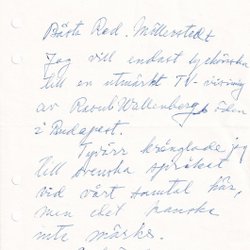 Bäste Red. Millerstedt
Jag vill endast lyckönska
till en utmärkt TV-visning
av Raoul Wallenbergs öden
i Budapest.
Tyvärr krånglade jag
till svenska språket
vid vårt samtal här,
men det kanske
inte märkes.